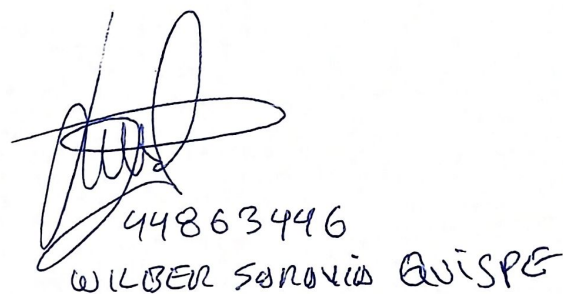 44863446
WILBER SARAVIA QUISPE